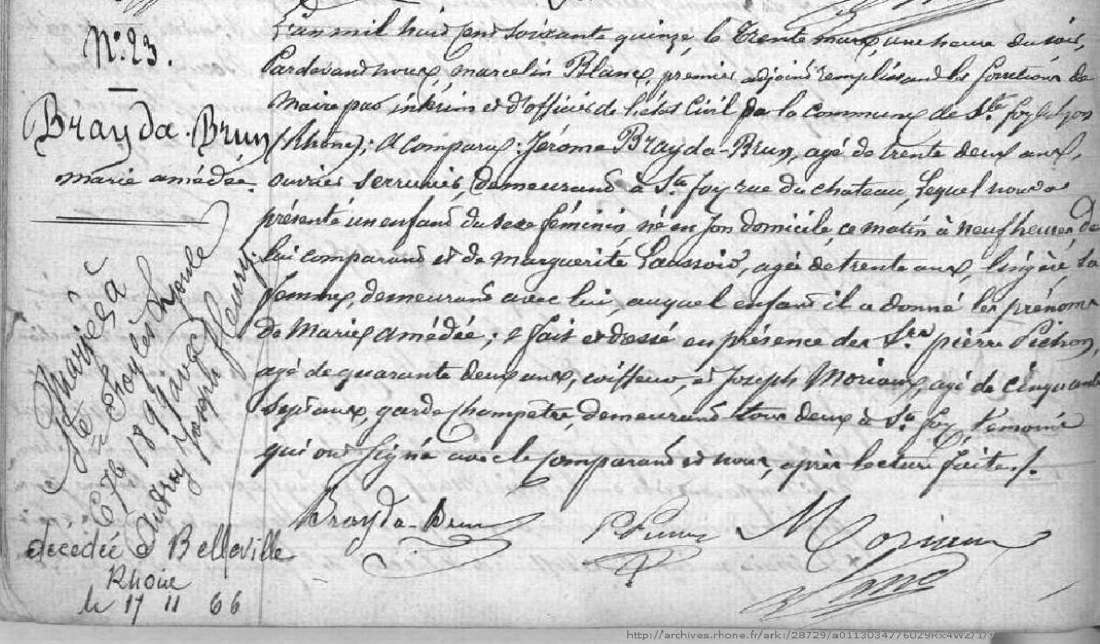 N°. 23.
Brayda-Brun
marie amédée.
L'an mil huit cent soixante quinze, le trente mars, une heure du soir,
Pardevant nous, marcelin Blanc, premier adjoint remplissant les fonctions de
Maire par intérim et d'officier de l'état civil de la commune de Ste foy les Lyon
(Rhône); A comparu: Jérôme Brayda-Brun, agé de trente deux ans,
ouvrier serrurier, demeurant à Ste foy rue du chateau, lequel nous a
présenté un enfant du sexe féminin né en son domicile, ce matin à neuf heures, de
lui comparant et de marguerite, agée de trente ans, lingère sa
femme, demeurant avec lui, auquel enfant il a donné les prénoms
de Marie amédée; fait et dressé en présence des Srs pierre Pichon,
agé de quarante deux ans, coiffeur, et Joseph Moriaux, agé de cinquante
sept ans, garde champêtre, demeurant tous deux à Ste foy, témoins
qui ont signé avec le comparant et nous, après lecture faite.
Brayda-Brun
Blanc
Mariée à
Ste Foy lès Lyon le
6 7bre 1899 avec
Joseph Fleury.
décédée à Belleville
Rhône
le 17 11 66
http://archives.rhone.fr/ark:/28729/